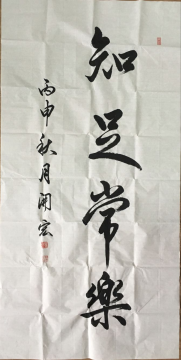 知足常樂
丙申秋月開宏